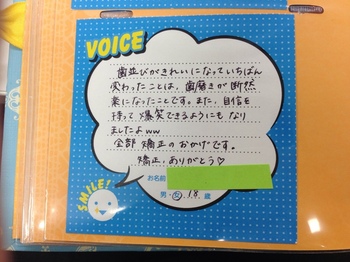 VOICE
歯並びがきれいになっていちばん
変わったことは、歯磨きが断然
楽になったことです。また、自信を
持って爆笑できるようにもなり
ましたよww
全部矯正のおかげです。
矯正、ありがとう♡
お名前
男・女 18 歳
SMILE!